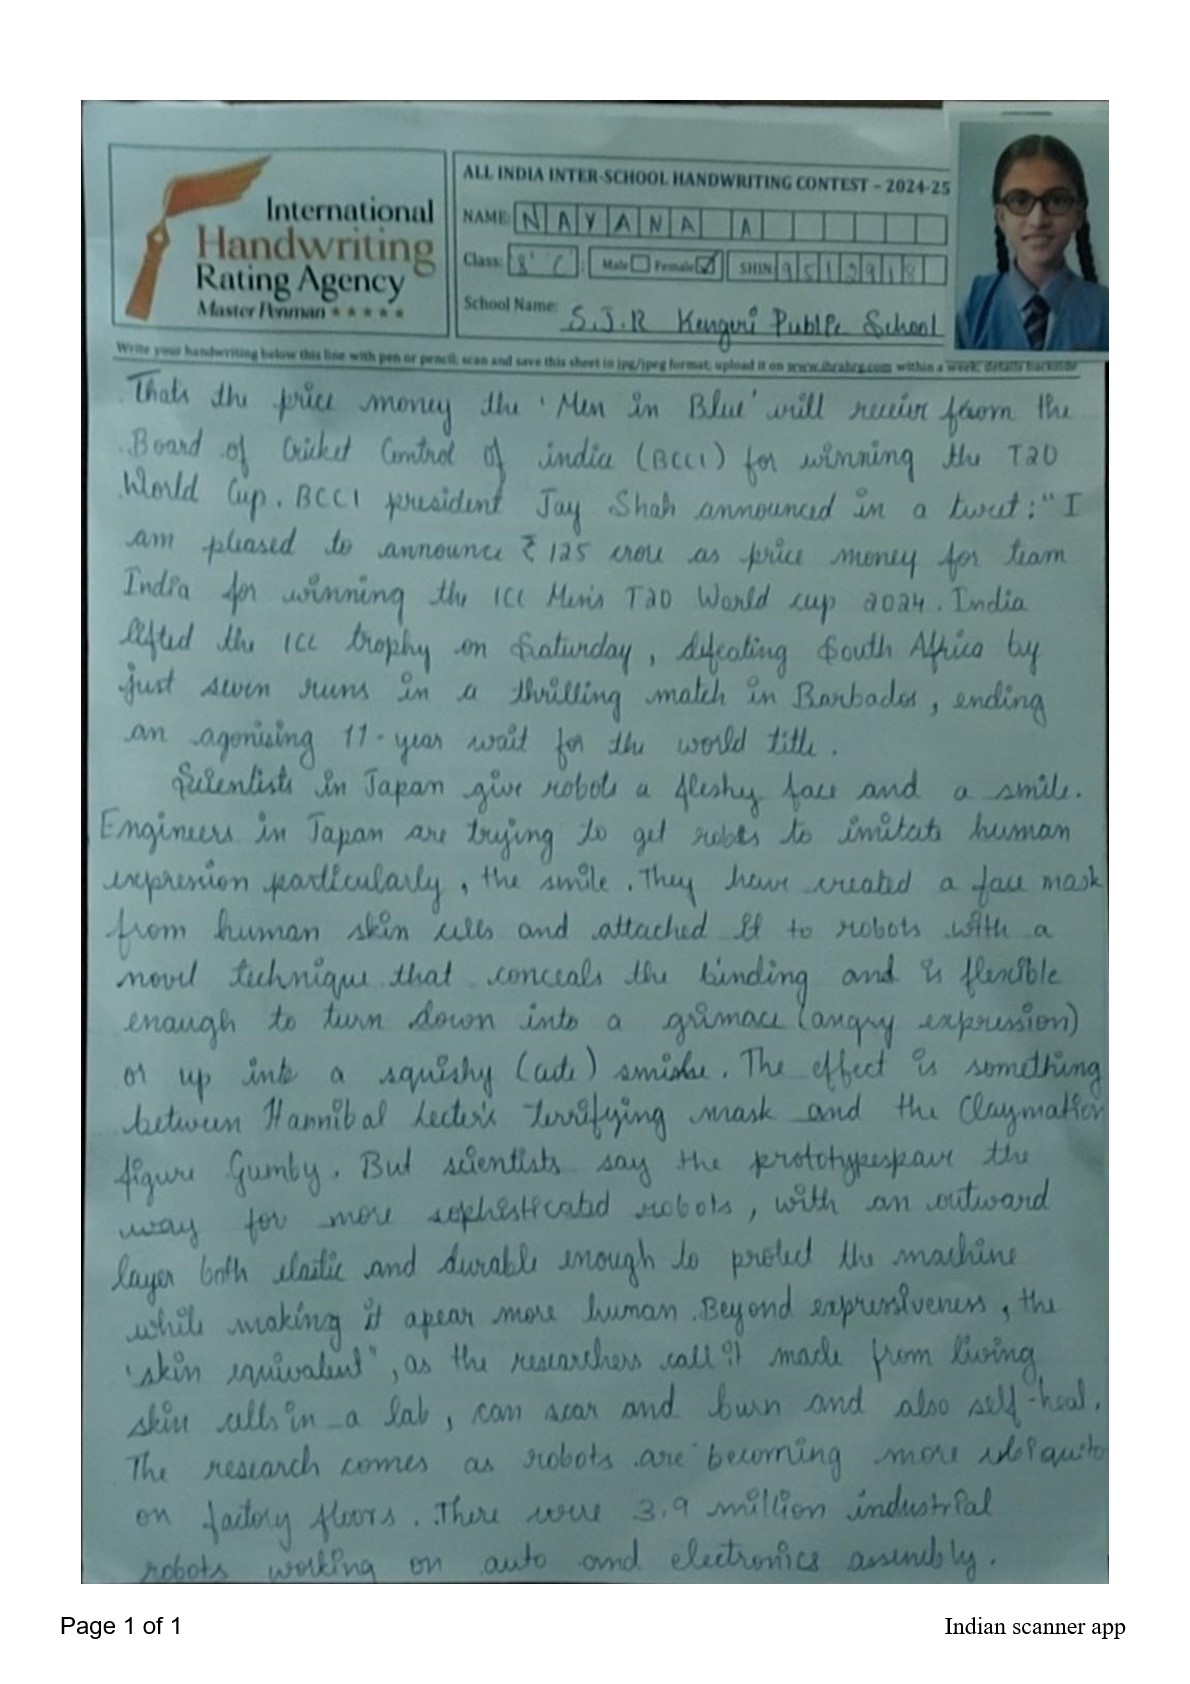 International
Handwriting
Rating Agency
Master Penman ★★★★★
ALL INDIA INTER-SCHOOL HANDWRITING CONTEST – 2024-25
NAME: NAYANA A
Class: 8 'C' Male Female ✓ SHIN 9512918
School Name: S.J.R Kengeri Public School
Write your handwriting below this line with pen or pencil; scan and save this sheet in jpg/jpeg format; upload it on www.ihrahrg.com within a week; details backside
Thats the price money the 'Men in Blue' will receive from the
Board of Cricket Control of india (BCCI) for winning the T20
World Cup. BCCI president Jay Shah announced in a tweet: "I
am pleased to announce ₹ 125 crore as price money for team
India for winning the ICC Men's T20 World cup 2024. India
lifted the ICC trophy on Saturday, defeating South Africa by
just seven runs in a thrilling match in Barbados, ending
an agonising 11-year wait for the world title.
Scientists in Japan give robots a fleshy face and a smile.
Engineers in Japan are trying to get robots to imitate human
expression particularly, the smile. They have created a face mask
from human skin cells and attached it to robots with a
novel technique that conceals the binding and is flexible
enough to turn down into a grimace (angry expression)
or up into a squishy (cute). The effect is something
between Hannibal Lecter's terrifying mask and the Claymation
figure Gumby. But scientists say the prototypespave the
way for more sophisticated robots, with an outward
layer both elastic and durable enough to protect the machine
while making it apear more human. Beyond expressiveness, the
'skin equivalent", as the researchers call it made from living
skin cells in a lab, can scar and burn and also self-heal.
The research comes as robots are becoming more
on factory floors. There were 3.9 million industrial
robots working on auto and electronics assembly.
Page 1 of 1
Indian scanner app